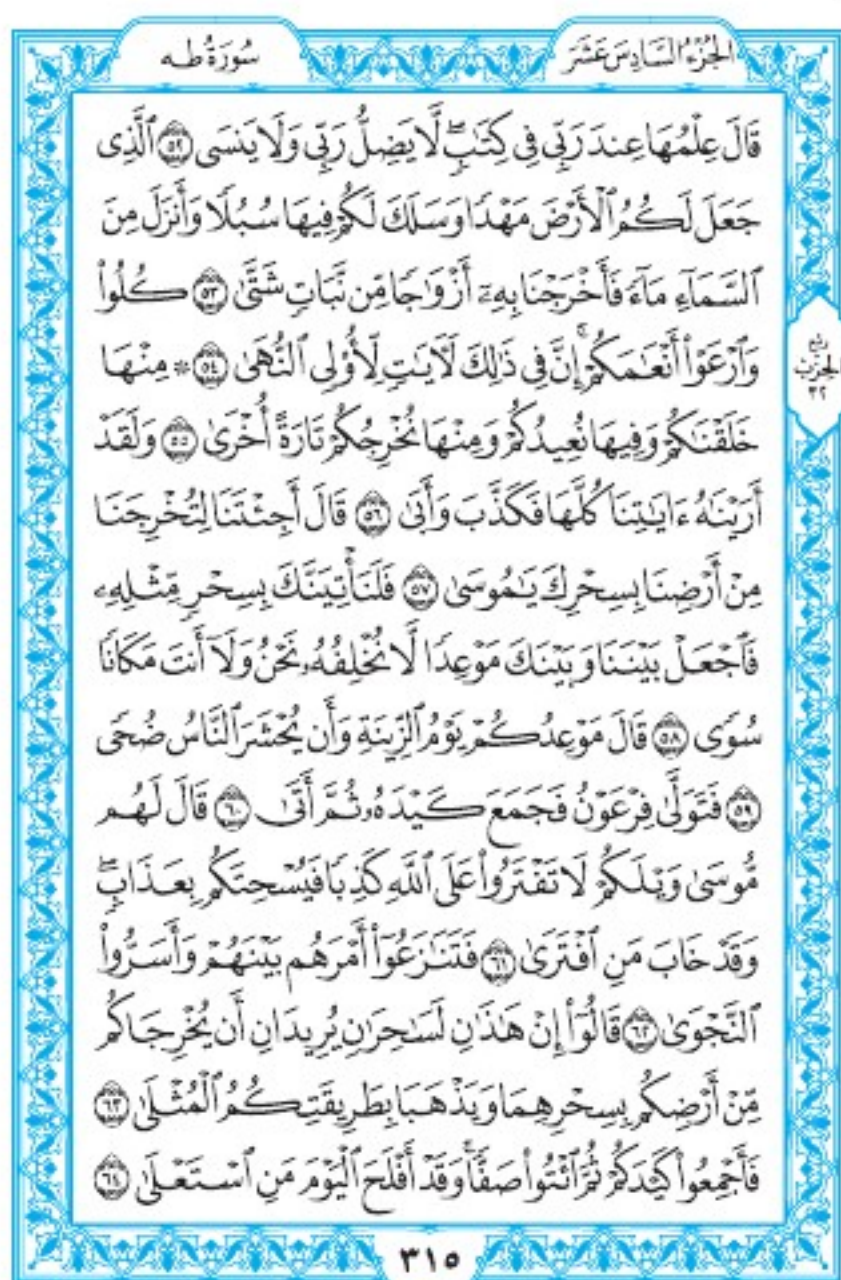 الجُزْءُ السَّادِسَ عَشَرَ
سُورَةُ طه
قَالَ عِلْمُهَا عِندَ رَبِّي فِي كِتَٰبٖۖ لَّا يَضِلُّ رَبِّي وَلَا يَنسَى ٥٢ ٱلَّذِي
جَعَلَ لَكُمُ ٱلْأَرْضَ مَهْدٗا وَسَلَكَ لَكُمْ فِيهَا سُبُلٗا وَأَنزَلَ مِنَ
ٱلسَّمَآءِ مَآءٗ فَأَخْرَجْنَا بِهِۦٓ أَزْوَٰجٗا مِّن نَّبَاتٖ شَتَّىٰ ٥٣ كُلُوا۟
وَٱرْعَوْا۟ أَنْعَٰمَكُمْۚ إِنَّ فِي ذَٰلِكَ لَأٓيَٰتٖ لِّأُو۟لِي ٱلنُّهَىٰ ٥٤ ۞ مِنْهَا
خَلَقْنَٰكُمْ وَفِيهَا نُعِيدُكُمْ وَمِنْهَا نُخْرِجُكُمْ تَارَةً أُخْرَىٰ ٥٥ وَلَقَدْ
أَرَيْنَٰهُ ءَايَٰتِنَا كُلَّهَا فَكَذَّبَ وَأَبَىٰ ٥٦ قَالَ أَجِئْتَنَا لِتُخْرِجَنَا
مِنْ أَرْضِنَا بِسِحْرِكَ يَٰمُوسَىٰ ٥٧ فَلَنَأْتِيَنَّكَ بِسِحْرٖ مِّثْلِهِۦ
فَٱجْعَلْ بَيْنَنَا وَبَيْنَكَ مَوْعِدٗا لَّا نُخْلِفُهُۥ نَحْنُ وَلَآ أَنتَ مَكَانٗا
سُوٗى ٥٨ قَالَ مَوْعِدُكُمْ يَوْمُ ٱلزِّينَةِ وَأَن يُحْشَرَ ٱلنَّاسُ ضُحٗى
٥٩ فَتَوَلَّىٰ فِرْعَوْنُ فَجَمَعَ كَيْدَهُۥ ثُمَّ أَتَىٰ ٦٠ قَالَ لَهُم
مُّوسَىٰ وَيْلَكُمْ لَا تَفْتَرُوا۟ عَلَى ٱللَّهِ كَذِبٗا فَيُسْحِتَكُم بِعَذَابٖۖ
وَقَدْ خَابَ مَنِ ٱفْتَرَىٰ ٦١ فَتَنَٰزَعُوٓا۟ أَمْرَهُم بَيْنَهُمْ وَأَسَرُّوا۟
ٱلنَّجْوَىٰ ٦٢ قَالُوٓا۟ إِنْ هَٰذَٰنِ لَسَٰحِرَٰنِ يُرِيدَانِ أَن يُخْرِجَاكُم
مِّنْ أَرْضِكُم بِسِحْرِهِمَا وَيَذْهَبَا بِطَرِيقَتِكُمُ ٱلْمُثْلَىٰ ٦٣
فَأَجْمِعُوا۟ كَيْدَكُمْ ثُمَّ ٱئْتُوا۟ صَفّٗاۚ وَقَدْ أَفْلَحَ ٱلْيَوْمَ مَنِ ٱسْتَعْلَىٰ ٦٤
ربع
الحِزْب
٣٢
٣١٥